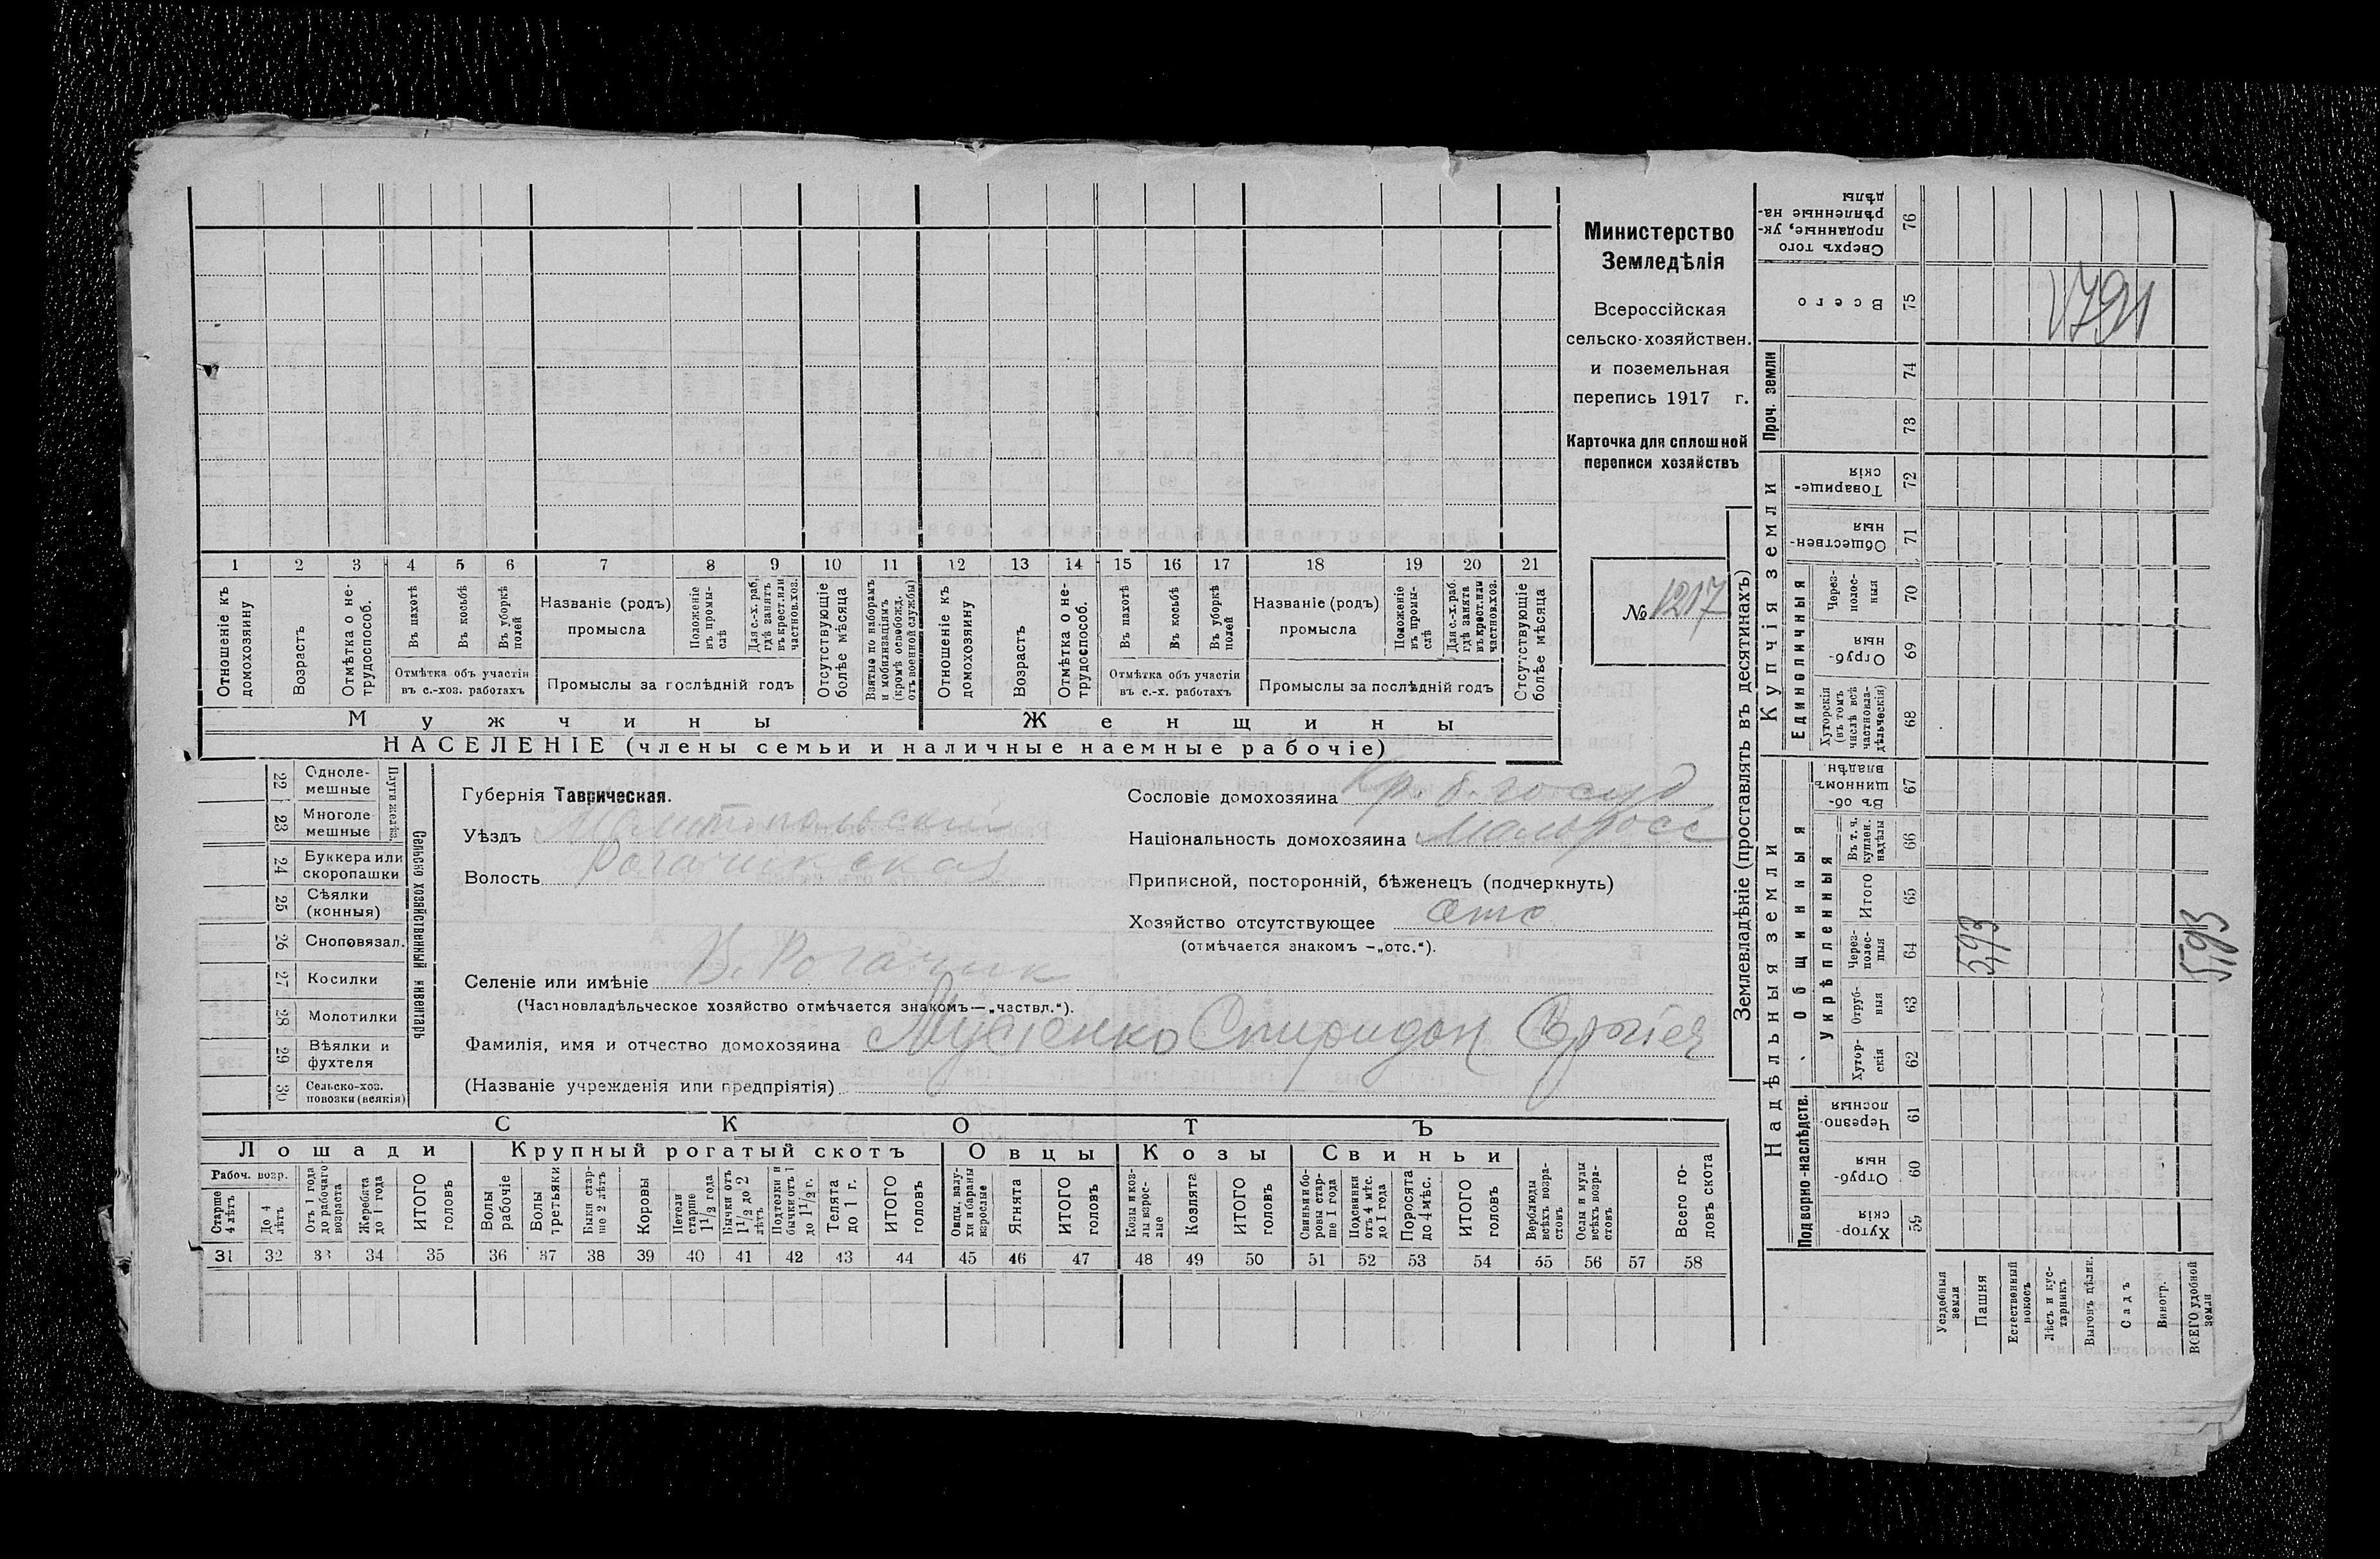 Министерство
Земледѣлія
Всероссійская
сельско-хозяйствен.
и поземельная
перепись 1917 г.
Карточка для сплошной
переписи хозяйствъ
№ 1217
1 2 3 4 5 6 7 8 9 10 11 12 13 14 15 16 17 18 19 20 21
Отношеніе къ домохозяину
Возрастъ
Отмѣтка о не-трудоспособ.
Въ пахотѣ
Въ косьбѣ
Въ уборкѣ полей
Отмѣтка объ участіи
въ с.-хоз. работахъ
Названіе (родъ)
промысла
Положеніе въ промы-слѣ
Для с.-х. раб. гдѣ занятъ въ крест. или частнов. хоз.
Промыслы за послѣдній годъ
Отсутствующіе болѣе мѣсяца
Взятые по наборамъ и мобилизаціямъ (кромѣ освобожд. отъ военной службы)
Отношеніе къ домохозяину
Возрастъ
Отмѣтка о не-трудоспособ.
Въ пахотѣ
Въ косьбѣ
Въ уборкѣ полей
Отмѣтка объ участіи
въ с.-х. работахъ
Названіе (родъ)
промысла
Положеніе въ промы-слѣ
Для с.-х. раб. гдѣ занята въ крест. или частнов. хоз.
Промыслы за послѣдній годъ
Отсутствующіе болѣе мѣсяца
Мужчины Женщины
НАСЕЛЕНІЕ (члены семьи и наличные наемные рабочіе)
Сельско хозяйственный инвентарь
Плуги желѣз.
22 Одноле-мешные
23 Многоле мешные
24 Буккера или скоропашки
25 Сѣялки (конныя)
26 Сноповязал.
27 Косилки
28 Молотилки
29 Вѣялки и фухтеля
30 Сельско-хоз. повозки (всякія)
Губернія Таврическая.
Уѣздъ Мелитопольскій
Волость Рогачикская
Селеніе или имѣніе В. Рогачик
(Частновладѣльческое хозяйство отмѣчается знакомъ—„частвл.“).
Фамилія, имя и отчество домохозяина Мусіенко Спиридон
(Названіе учрежденія или предпріятія)
Сословіе домохозяина Кр. б. госуд
Національность домохозяина Малоросс
Приписной, посторонній, бѣженецъ (подчеркнуть)
Хозяйство отсутствующее Отс
(отмѣчается знакомъ —„отс.“).
СКОТЪ
Лошади Крупный рогатый скотъ Овцы Козы Свиньи
Рабоч. возр.
Старше 4 лѣтъ
До 4 лѣтъ
Отъ 1 года до рабочаго возраста
Жеребята до 1 года
ИТОГО головъ
Волы рабочіе
Волы третьяки
Быки стар-ше 2 лѣтъ
Коровы
Нетели старше 1 1/2 года
Бычки отъ 1 1/2 до 2 лѣтъ
Подтелки и бычки отъ 1 до 1 1/2 г.
Телята до 1 г.
ИТОГО головъ
Овцы, валу-хи и бараны взрослые
Ягнята
ИТОГО головъ
Козы и коз-лы взрос-лые
Козлята
ИТОГО головъ
Свиньи и бо-ровы стар-ше 1 года
Подсвинки отъ 4 мѣс. до 1 года
Поросята до 4 мѣс.
ИТОГО головъ
Верблюды всѣхъ возра-стовъ
Ослы и мулы всѣхъ возра-стовъ
Всего го-ловъ скота
31 32 33 34 35 36 37 38 39 40 41 42 43 44 45 46 47 48 49 50 51 52 53 54 55 56 57 58
Землевладѣніе (проставлять въ десятинахъ)
Надѣльныя земли
Купчія земли
Проч. земли
Подворно-наслѣдств.
Общинныя
Укрѣпленныя
Единоличныя
59 Хутор-скія
60 Отруб-ныя
61 Черезпо-лосныя
62 Хутор-скія
63 Отруб-ныя
64 Через-полос-ныя
65 Итого
66 Въ т. ч. куплен. надѣлы
67 Въ об-щинномъ владѣн.
68 Хуторскія (въ томъ числѣ всѣ частновла-дѣльческія)
69 Отруб-ныя
70 Через-полос-ныя
71 Обществен-ныя
72 Товарище-скія
73
74
75 Всего
76 Сверхъ того проданные, ук-рѣпленные на-дѣлы
Усадебныя земли
Пашня
Естественный покосъ
Лѣсъ и кус-тарникъ
Выгонъ цѣлин.
Садъ
Виногр.
ВСЕГО удобной земли
593
593
1791